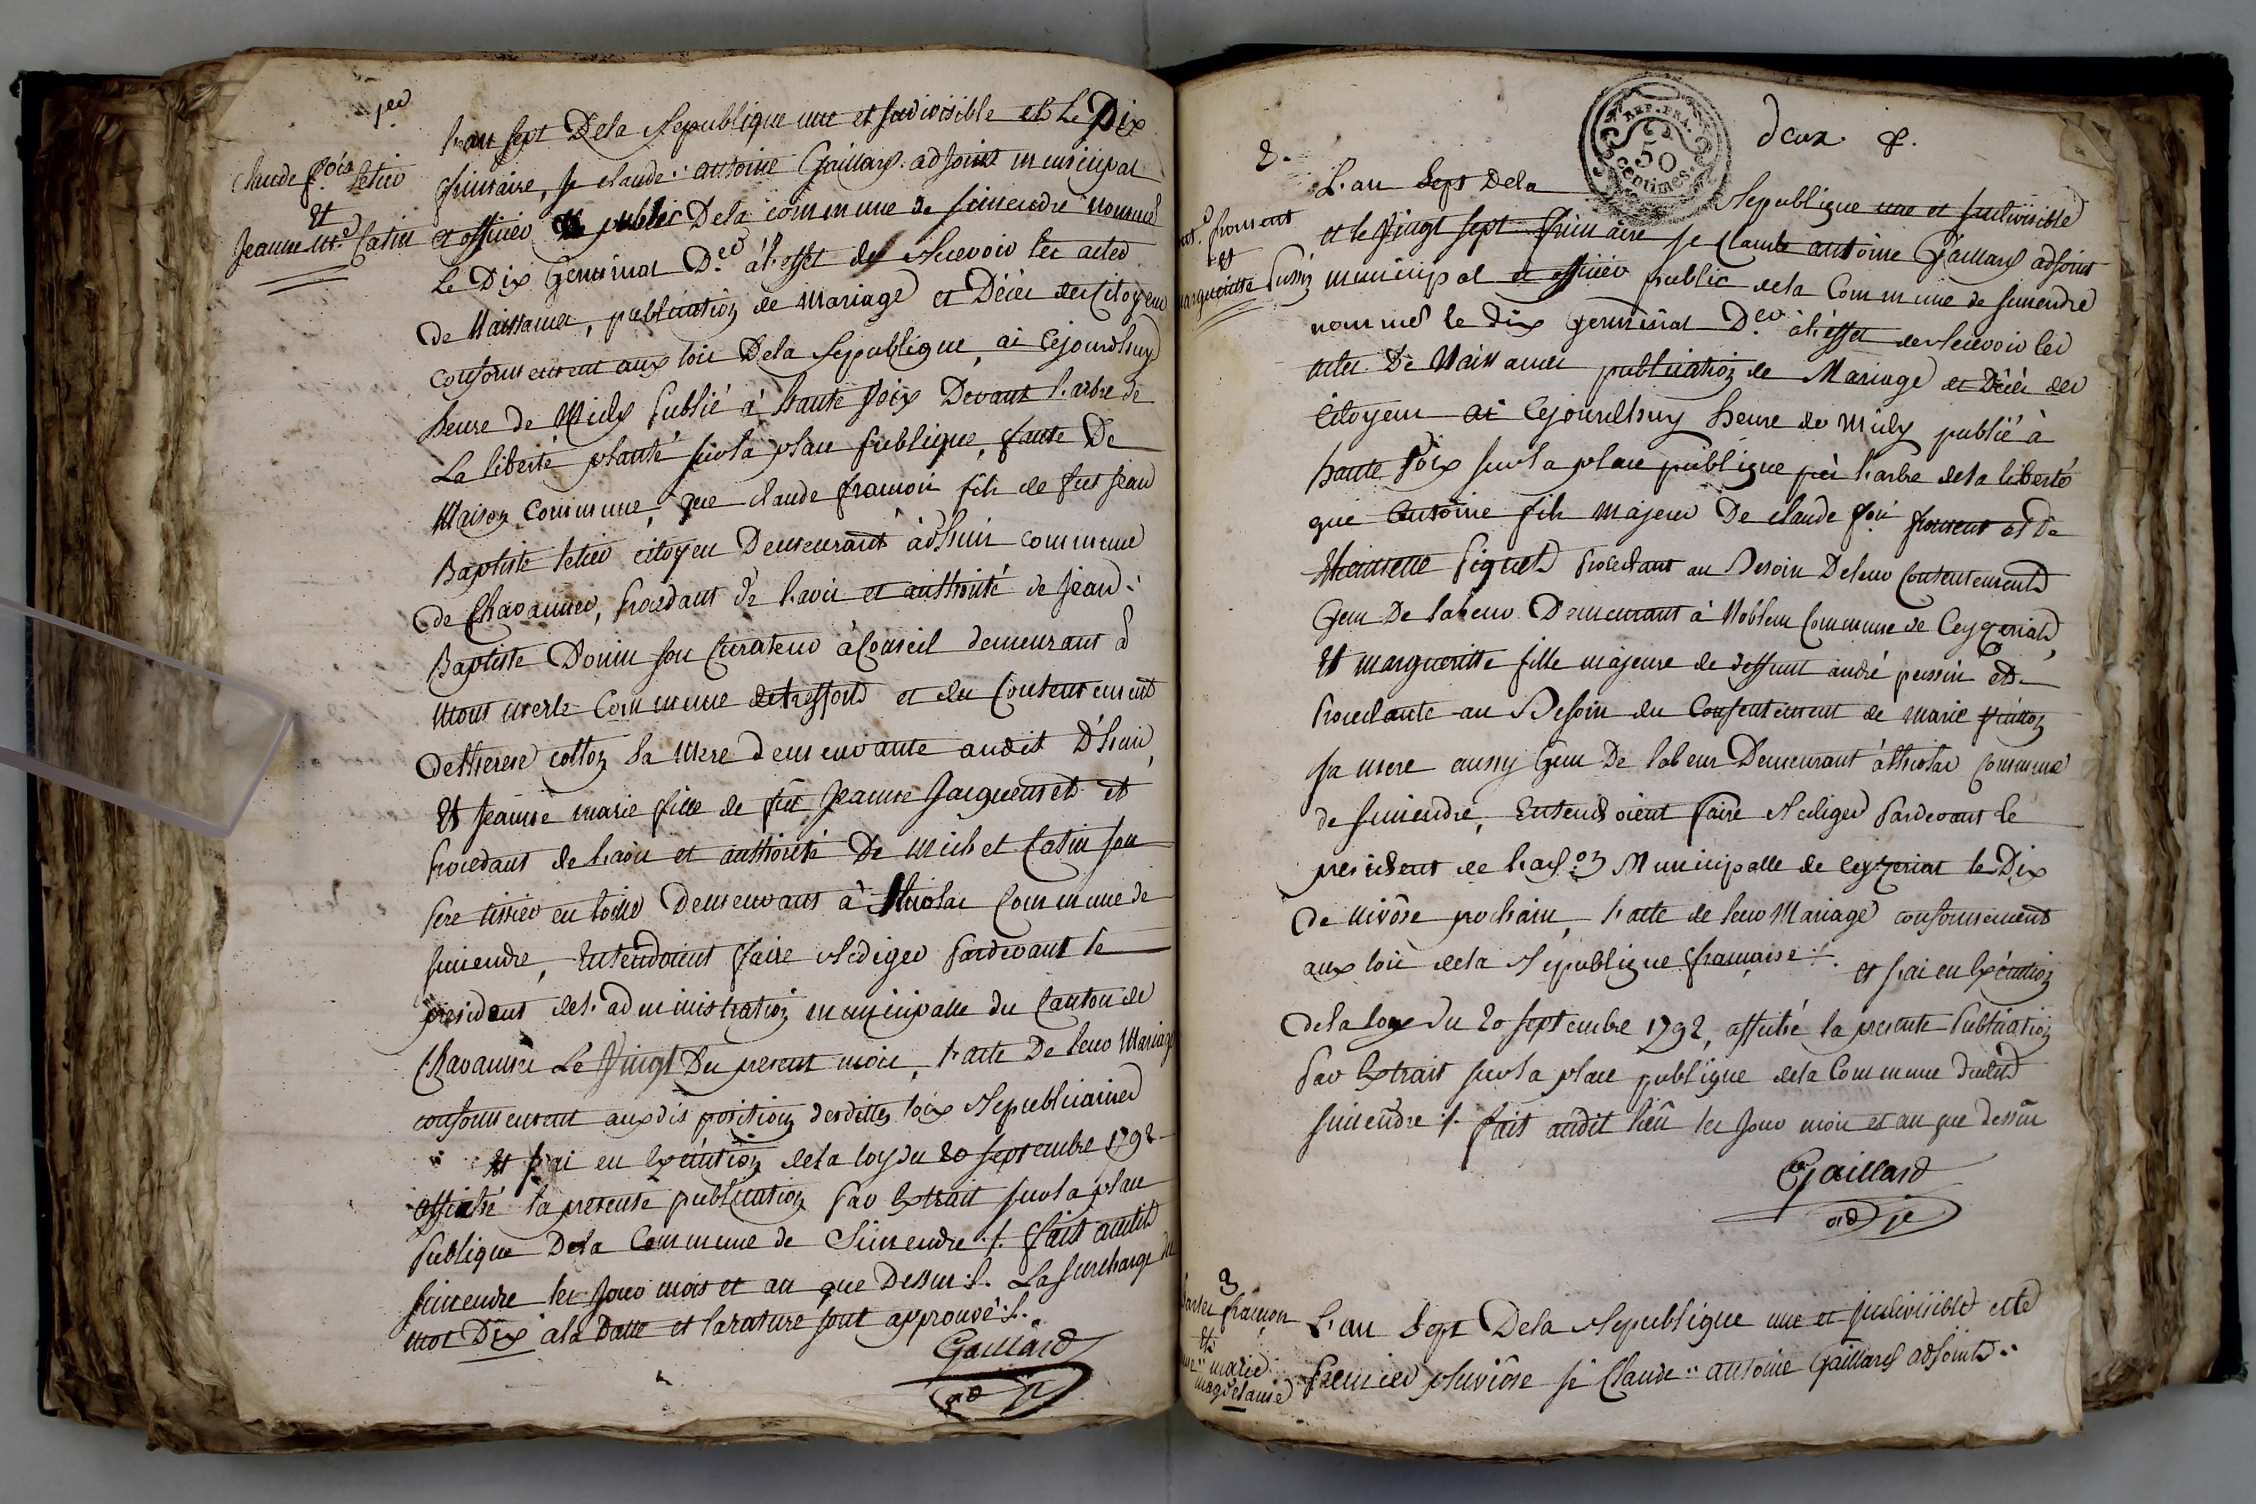 1er
Claude f.ois
Letier
et
Jeanne m.e Catin
L'an sept De la Republique une et Indivisible et le Dix
frimaire, Je claude antoine Gaillard adjoint municipal
et officier public De la commune de simendre nommé
le Dix Germinal D.er à l'effet de Recevoir les actes
de Naissance, publication de Mariage et Décès des Citoyens
conformement aux lois De la Republique, ai Cejourdhuy
heure de Midy Publié à haute voix Devant l'arbre de
La liberté planté sur la place publique, faute De
Maison Commune, que claude francois fils de fut Jean
Baptiste Letier citoyen Demeurant à dhuin commune
de Chavannes, Procedant de l'avis et authorité de Jean
Baptiste Donin son Curateur à Conseil demeurant à
Mont merle Commune de treffort et du Consentement
de therese cotton sa Mere demeurante audit D'huin,
Et Jeanne marie fille de fut Jeanne Jacquemet et
Procedant de l'avis et authorité De Michel Catin son
Pere tissier en toile Demeurant à Nicolas Commune de
simendre, Entendoient faire Rediger Pardevant le
president de l'administration municipalle du Canton de
Chavannes Le Vingt Du present mois, l'acte De leur Mariage
conformement aux dispositions desdittes loix Republicaines
Et j'ai en Exécution de la loy du 20 septembre 1792
affiché la presente publication Par Extrait sur la place
Publique De la Commune de Simendre ./. fait audit
simendre les Jour mois et an que Dessus ./. La surcharge du
mot Dix à la Datte et la rature sont approuvé ./.
Gaillard
adj
deux
REP. FRA.
50
centimes.
2.
ant. froment
et
marguerite Pussin
L'an Sept De la Republique une et Indivisible
et le Vingt sept frimaire Je Claude antoine Gaillard adjoint
municipal et officier public de la Commune de simendre
nommé le dix germinal D.er à l'effet de Recevoir les
actes De Naissance publication de Mariage et Décès des
Citoyens ai Cejourdhuy heure de Midy publié à
haute Voix sur la place publique près l'arbre de la liberté
que Antoine fils majeur De claude f.ois froment et De
Piquet Procedant au Besoin De leur Consentement
Gens De labeur Demeurant à Noblens Commune de Ceyzeriat,
Et marguerite fille majeure de deffunt andré pussin et
Procedante au Besoin du Consentement de Marie
sa mere aussy Gens De labeur Demeurant à Nicolas Commune
de simendre, Entendoient faire Rediger Pardevant le
president de l'ad.on Municipalle de Ceyzeriat le Dix
de nivôse prochain, l'acte de leur Mariage conformement
aux lois de la Republique française ./. et j'ai en Exécution
de la loy Du 20 septembre 1792, affiché la presente Publication
Par Extrait sur la place publique de la Commune dudit
simendre ./. fait audit lieu les Jour mois et an que dessus
Gaillard
adj
3
francon
et
marie
magdelaine
L'an Sept De la Republique une et Indivisible et le
Premier pluviôse Je Claude antoine Gaillard adjoint